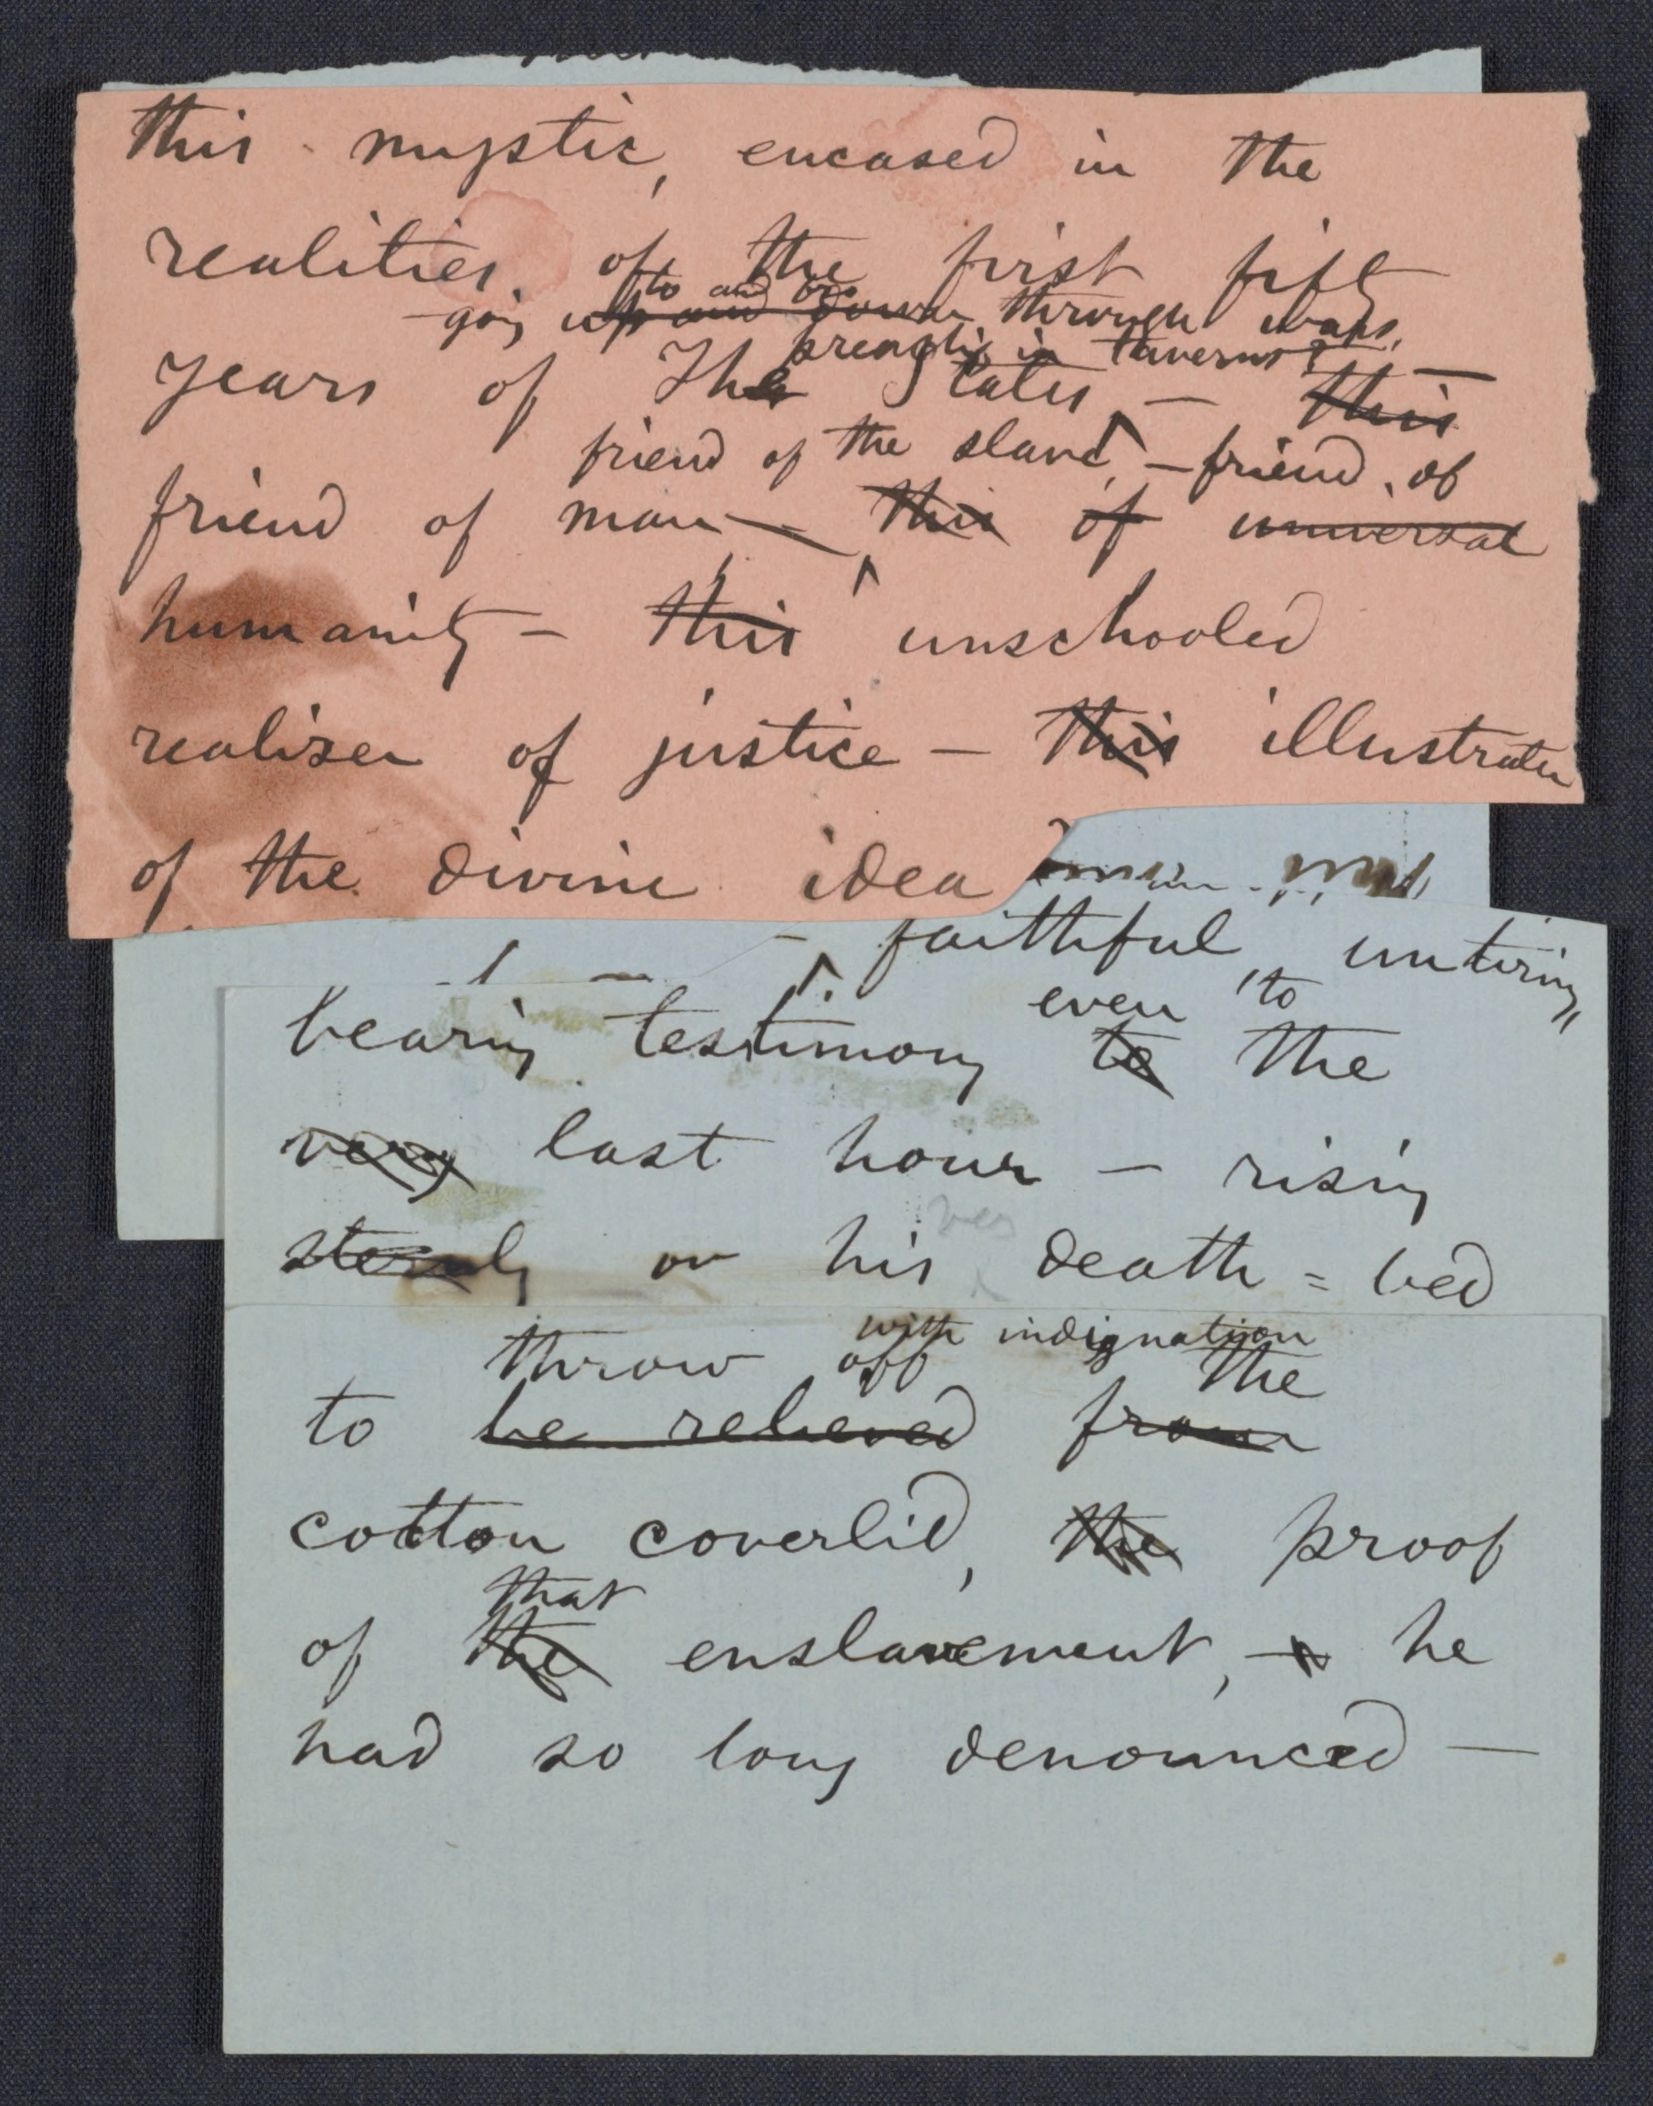 this mystic, encased in the
realities of the first fifty
to and fro
going up and down through woods,
preaching in taverns,
years of The States — this
friend of the slave, — friend of
friend of man — this of universal
humanity — this unschooled
realizer of justice — this illustrator
of the divine idea
— faithful, untiring,
even to
bearing testimony to the
very last hour — rising
sternly on his death = bed
with indignation
throw off the
to be relieved from
cotton coverlid, the proof
that
of the enslavement, he
had so long denounced —